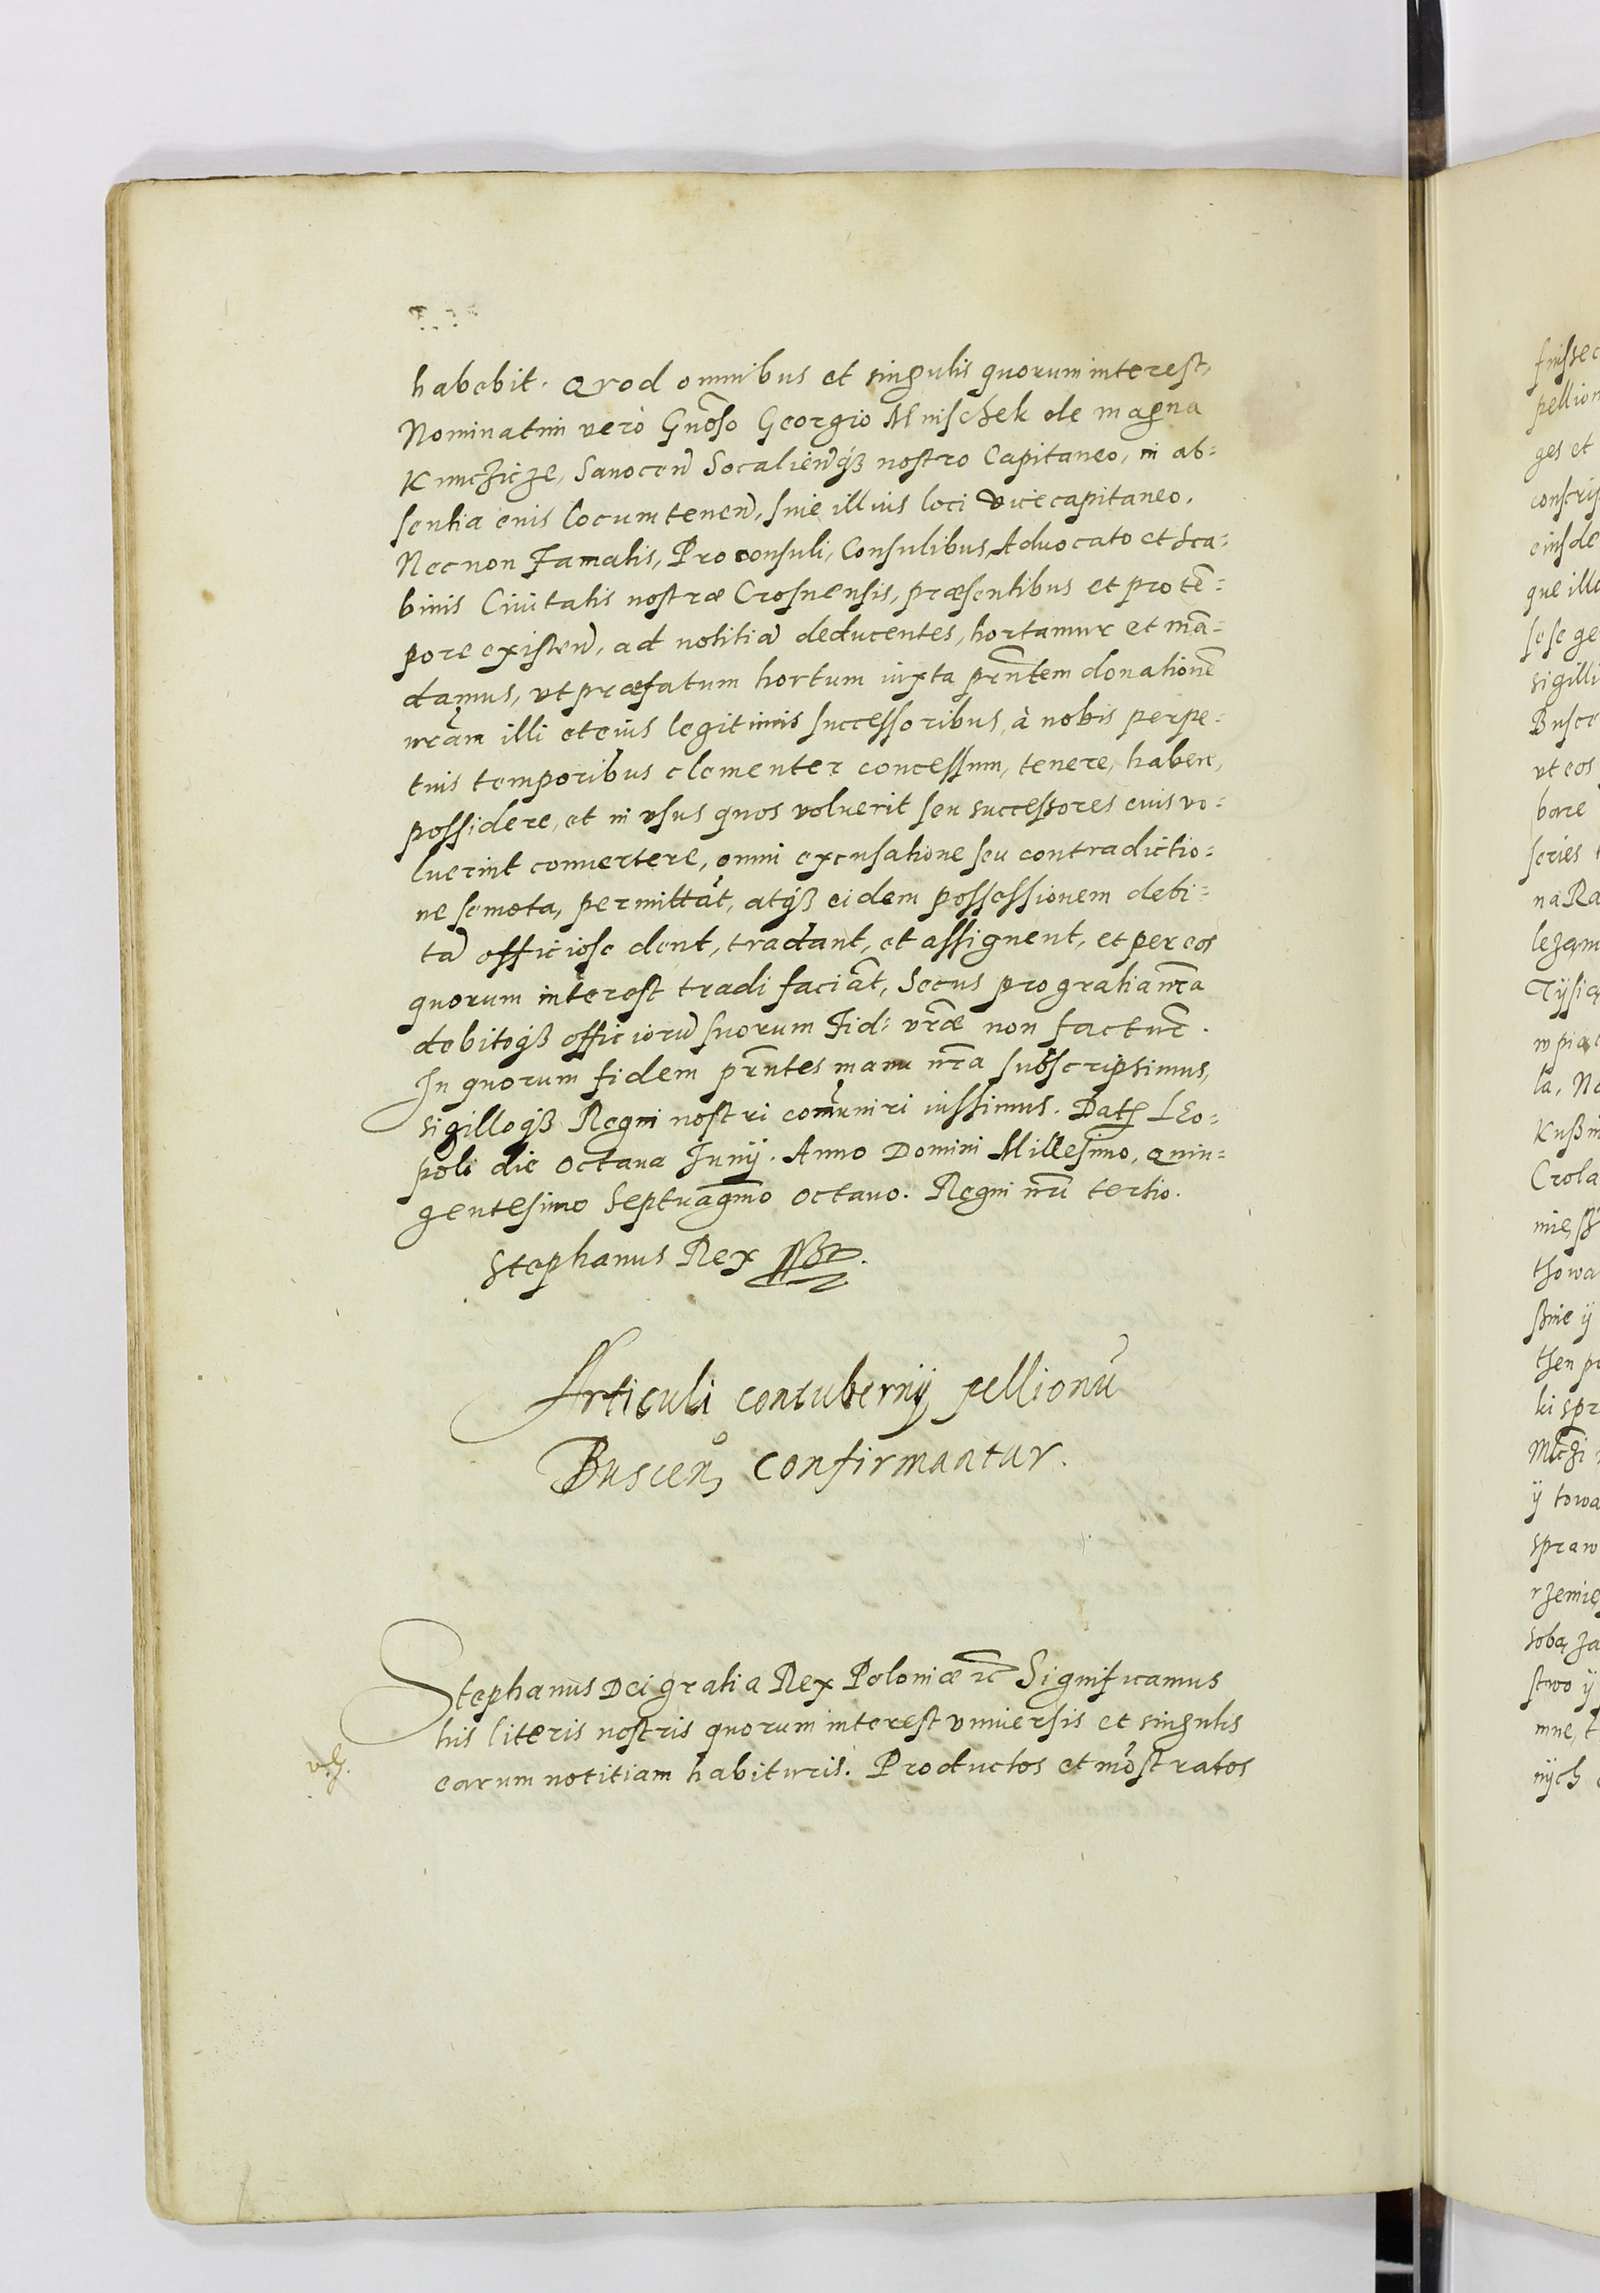 habebit. Quod omnibus et singulis quorum interest,
Nominatim verò Gnõso Georgio Mnischek de magna
Kunczicze, Sanoceñ Socalieñqȝ nostro Capitaneo, in ab=
sentia eius locum teneñ, siue illius loci vicecapitaneo.
Necnon Famatis, Proconsuli, Consulibus, Aduocato et Sca=
binis Ciuitatis nostræ Crosnensis, præsentibus et pro tẽ=
pore existeñ, ad notitiã deducentes, hortamur et mã=
damus, vt præfatum hortum iuxta prñtem donationẽ
nrãm illi et eius legitimis successoribus, à nobis perpe=
tuis temporibus clementer concessum, tenere, habere,
possidere, et in vsus quos voluerit seu successores euis vo=
luerint conuertere, omni excusatione seu contradictio=
ne semota, permittãt, atqȝ eidem possessionem debi=
tã officiose dent, tradant, et assignent, et per eos
quorum interest tradi faciãt, Secus pro gratia nr̃a
debitoqȝ officiorũ suorum Fid: vr̃æ non factur̃.
In quorum fidem prñtes manu nr̃a subscripsimus,
sigilloqȝ Regni nostri com̃uniri iussimus. Datȝ Leo=
poli die octaua Junij. Anno Domini Millesimo, quin=
gentesimo Septuagm̃o octauo. Regni nr̃i tertio.
Stephanus Rex
Articuli contubernij pellionũ
Busceñ, confirmantur.
Stephanus Dei gratia Rex Poloniæ ꝛc̃ Significamus
his literis nostris quorum interest vniuersis et singulis
earum notitiam habituris. Productos et mõstratos